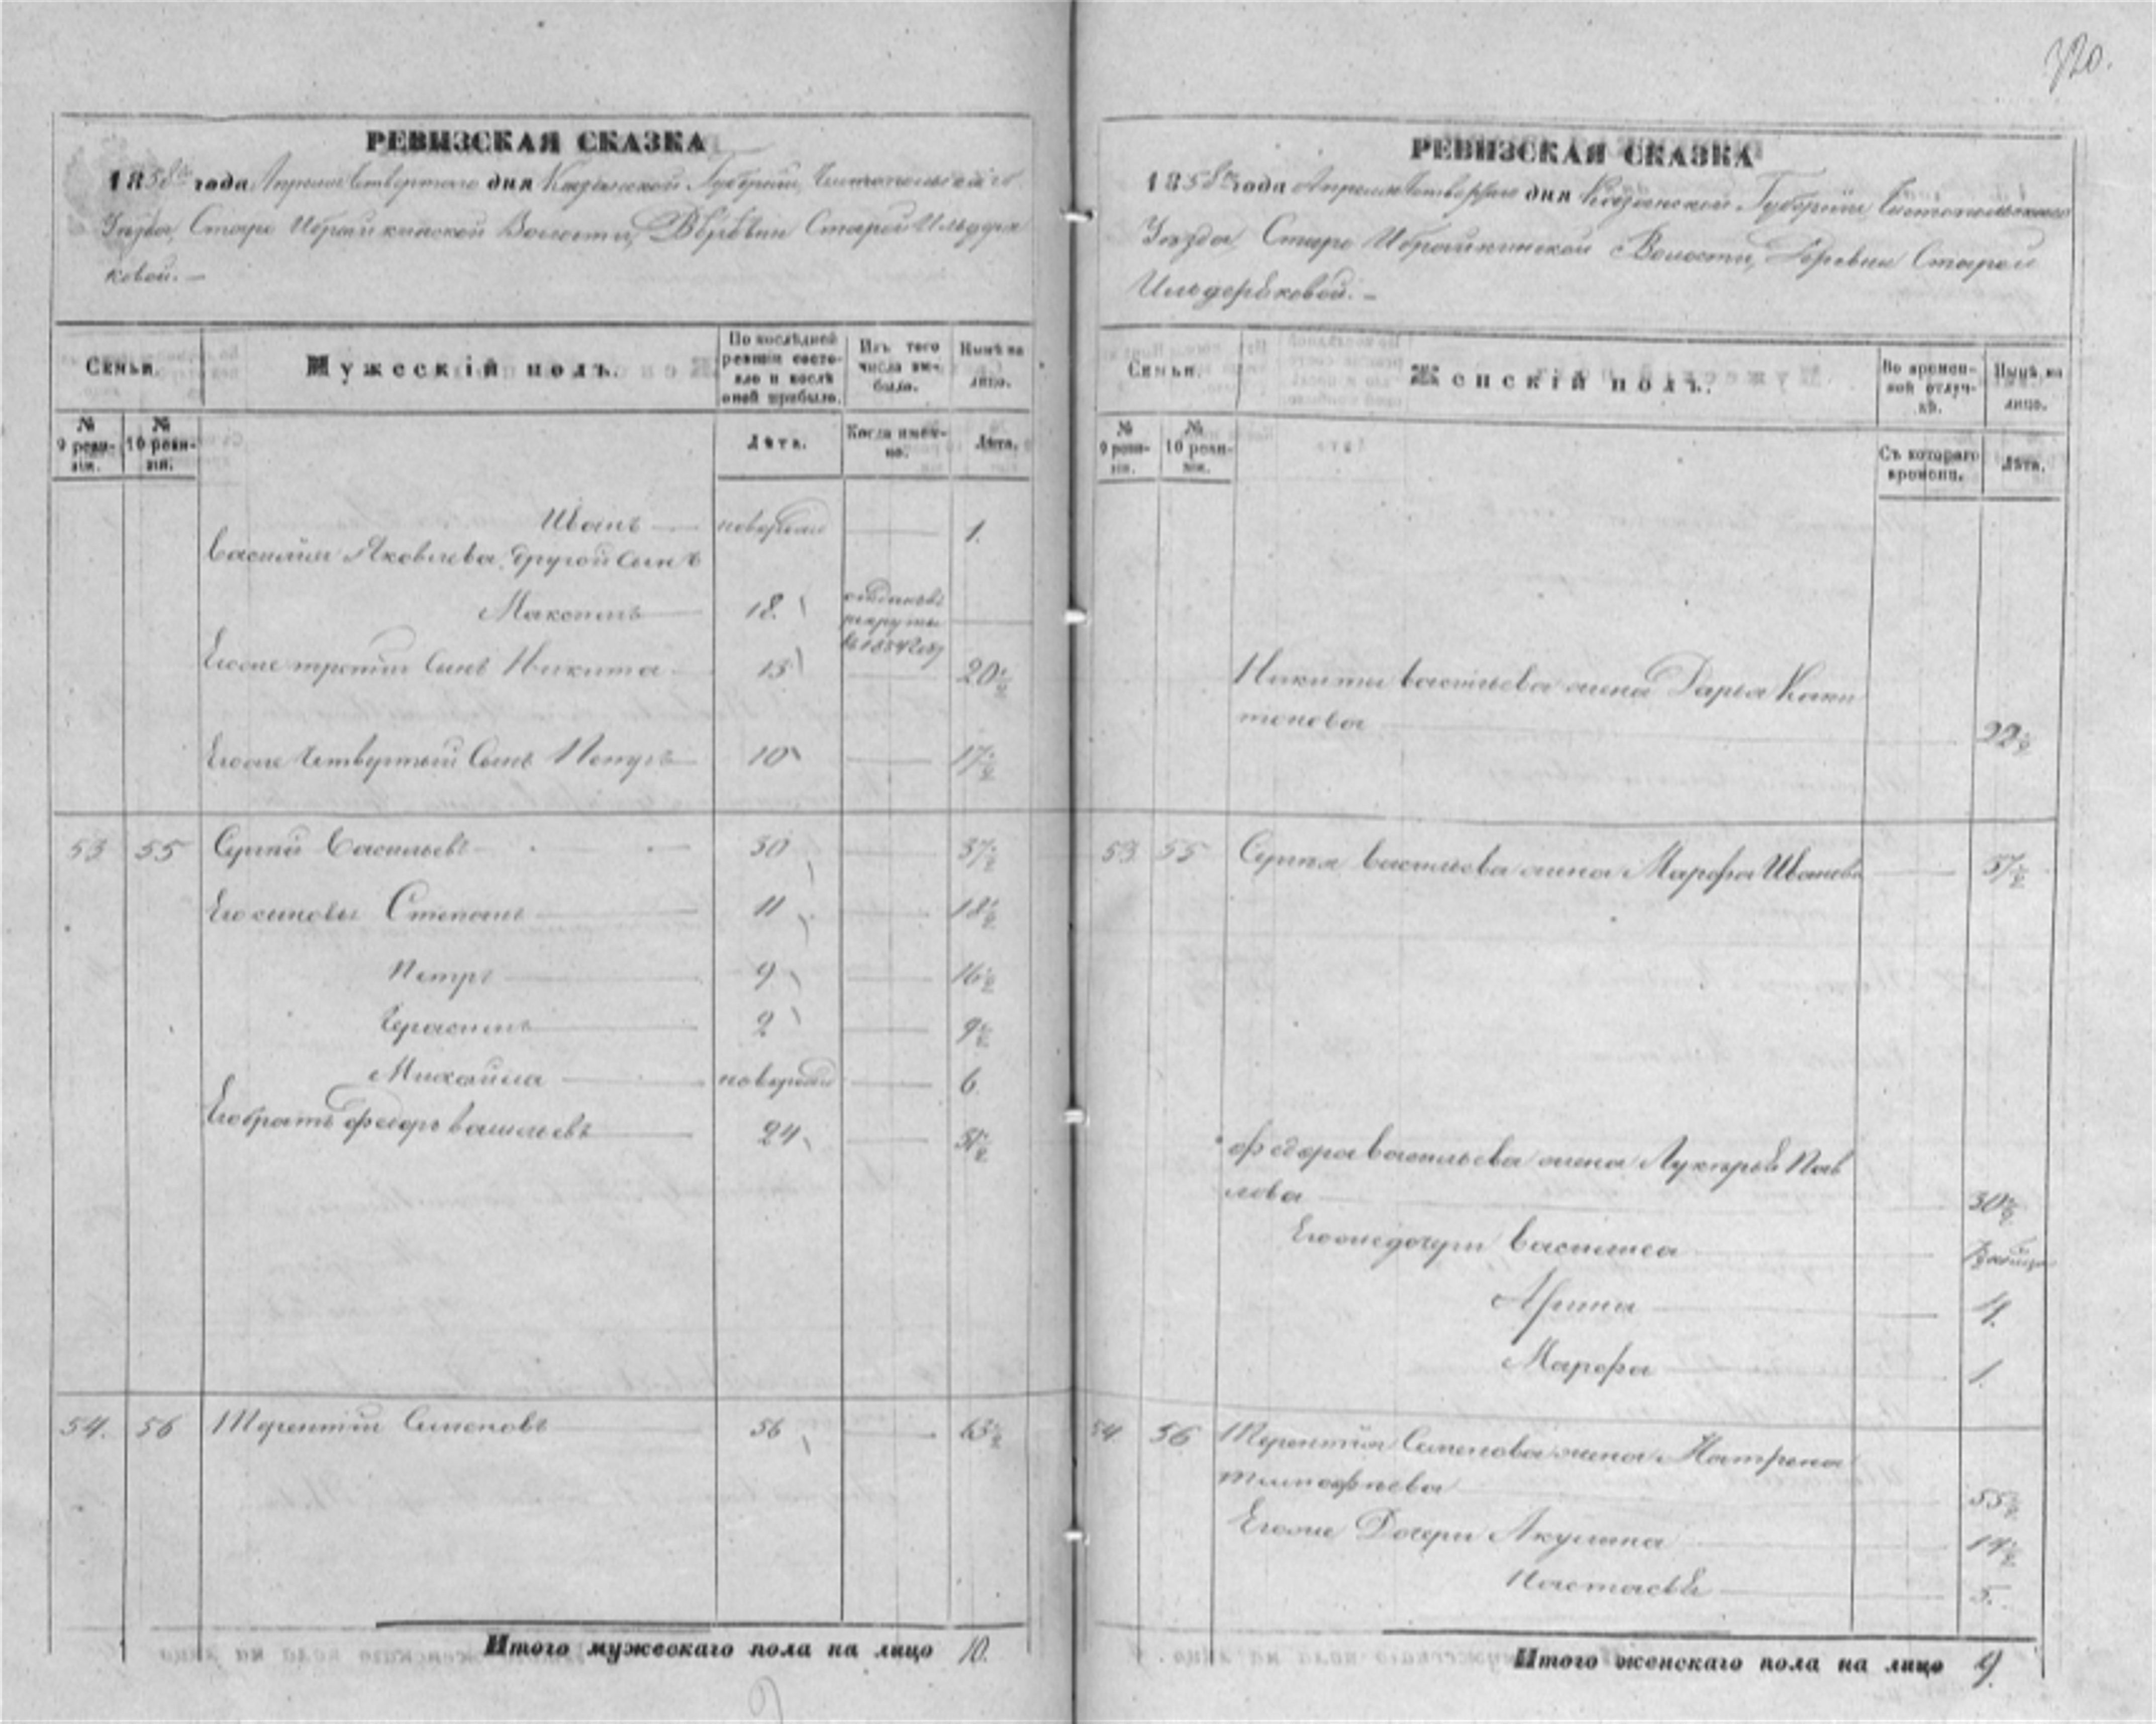 720.
РЕВИЗСКАЯ СКАЗКА
1858го года Апреля Четвертаго дня Казанской Губерніи, Чистопольскаго
Уезда, Старо Ибрайкинской Волости, Деревни Старой Ильдеря
ковой. —
Семьи.
Мужескій полъ.
По послѣдней ревизіи состояло и послѣ оной прибыло.
Изъ того числа выбыло.
Нынѣ на лицо.
№ 9 ревизіи.
№ 10 ревизіи.
Лѣта.
Когда именно.
Лѣта.
Иванъ — новорож — 1.
Василія Яковлева другой сынъ
Максимъ — 18. отданъ въ рекруты въ 1854 году
Егоже третій Сынъ Никита 13 — 20½
Егоже Четвертый Сынъ Петръ 10 — 17½
53 55 Сергей Васильевъ — 30 — 37½
Его сыновья Степанъ — 11 — 18½
Петръ — 9 — 16½
Герасимъ — 2 — 9½
Михайла — новорож — 6
Его братъ Федоръ Васильевъ — 24 — 31½
54. 56 Терентій Семеновъ 56 — 63½
Итого мужескаго пола на лицо 10.
РЕВИЗСКАЯ СКАЗКА
1858го года Апреля Четвертаго дня Казанской Губерніи Чистопольскаго
Уезда, Старо Ибрайкинской Волости, Деревни Старой
Ильдеряковой. —
Семьи.
Женскій полъ.
Во временной отлучкѣ.
Нынѣ на лицо.
№ 9 ревизіи.
№ 10 ревизіи.
Съ котораго времени.
Лѣта.
Никиты Васильева жена Дарья Капи
тонова — 22½
53. 55 Сергея Васильева жена Марфа Иванова — 37½
Федора Васильева жена Лукерья Пав
лова — 30½
Егоже дочери Василиса
Арина — 4.
Марфа — 1.
54. 56 Терентія Семенова жена Матрена
Тимофеева — 55½
Егоже Дочери Акулина — 14½
Настасья — 5.
Итого женскаго пола на лицо 9.